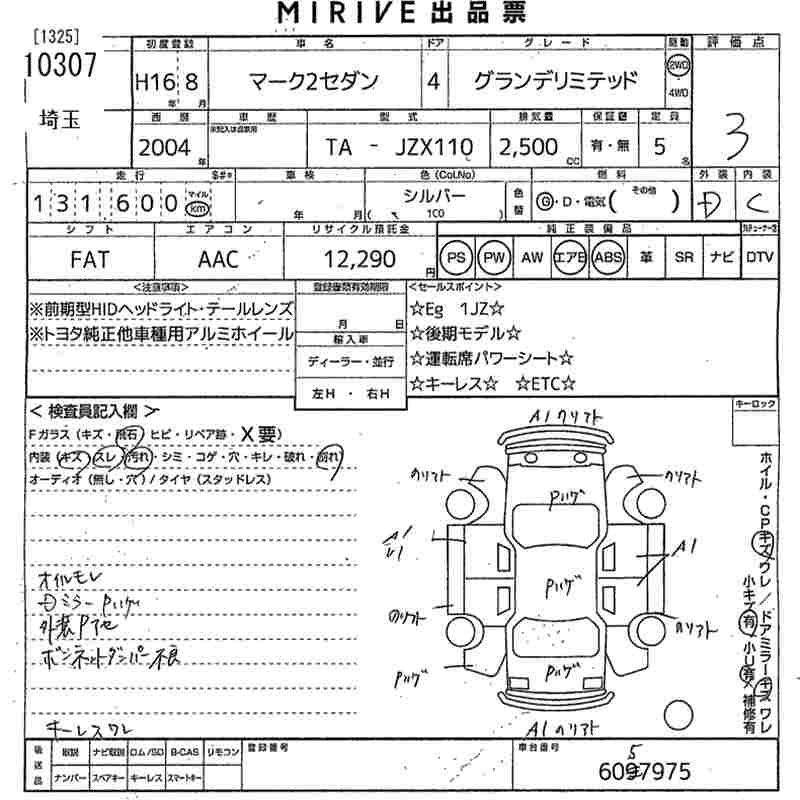 MIRIVE 出品票
[1325]
10307
埼玉
初度登録 車名 ドア グレード 駆動 評価点
H16 8 マーク2セダン 4 グランデリミテッド 2WD 4WD
年 月
3
西暦 車歴 型式 排気量 保証書 定員
※記入は自家用
2004 年 TA - JZX110 2,500 CC 有・無 5 名
走行 車検 色(Col.No) 燃料 外装 内装
131600 マイル km 年 月 シルバー ( 1C0 ) 色替 G・D・電気( その他 ) D C
シフト エアコン リサイクル預託金 純正装備品
FAT AAC 12,290 円 PS PW AW エアB ABS 革 SR ナビ DTV
<注意事項> 登録書類有効期限 <セールスポイント>
※前期型HIDヘッドライト・テールレンズ 月 日 ☆Eg 1JZ☆
※トヨタ純正他車種用アルミホイール 輸入車 ☆後期モデル☆
ディーラー・並行 ☆運転席パワーシート☆
左H ・ 右H ☆キーレス☆ ☆ETC☆
<検査員記入欄> キーロック
Fガラス(キズ・飛石 ヒビ・リペア跡・X要)
内装(キズ スレ 汚れ・シミ・コゲ・穴・キレ・破れ・割れ)
オーディオ(無し・穴)/タイヤ(スタッドレス)
A1 クリフト
のリフト のリフト
Pハゲ
A1
A1
Pハゲ
のリフト のリフト
Pハゲ Pハゲ
A1 のリフト
オイルモレ
Dミラー Pハゲ
外装P下地
ボンネットダンパー不良
キーレスワレ
ホイル・CPキズワレ/ドアミラーキズワレ
小キズ有 小U有 補修有
後送品 取説 ナビ取説 ロム/SD B-CAS リモコン 登録番号 車台番号
ナンバー スペアキー キーレス スマートキー
5
6097975